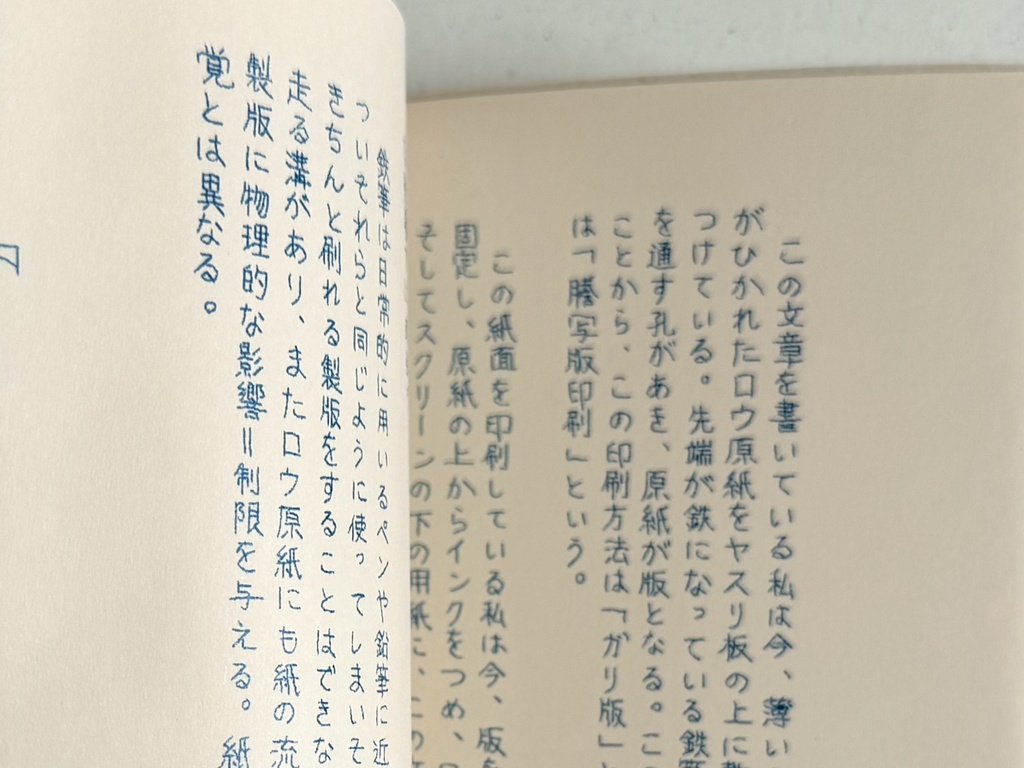 この文章を書いている私は今、薄い
がひかれたロウ原紙をヤスリ板の上に
つけている。先端が鉄になっている鉄
を通す孔があき、原紙が版となる。こ
ことから、この印刷方法は「ガリ版」と
は「謄写版印刷」という。
この紙面を印刷している私は今、版を
固定し、原紙の上からインクをつめ、
そしてスクリーンの下の用紙に、この
鉄筆は日常的に用いるペンや鉛筆に近
ついそれらと同じように使ってしまいそ
きちんと刷れる製版をすることはできな
走る溝があり、またロウ原紙にも紙の流
製版に物理的な影響＝制限を与える。紙
覚とは異なる。